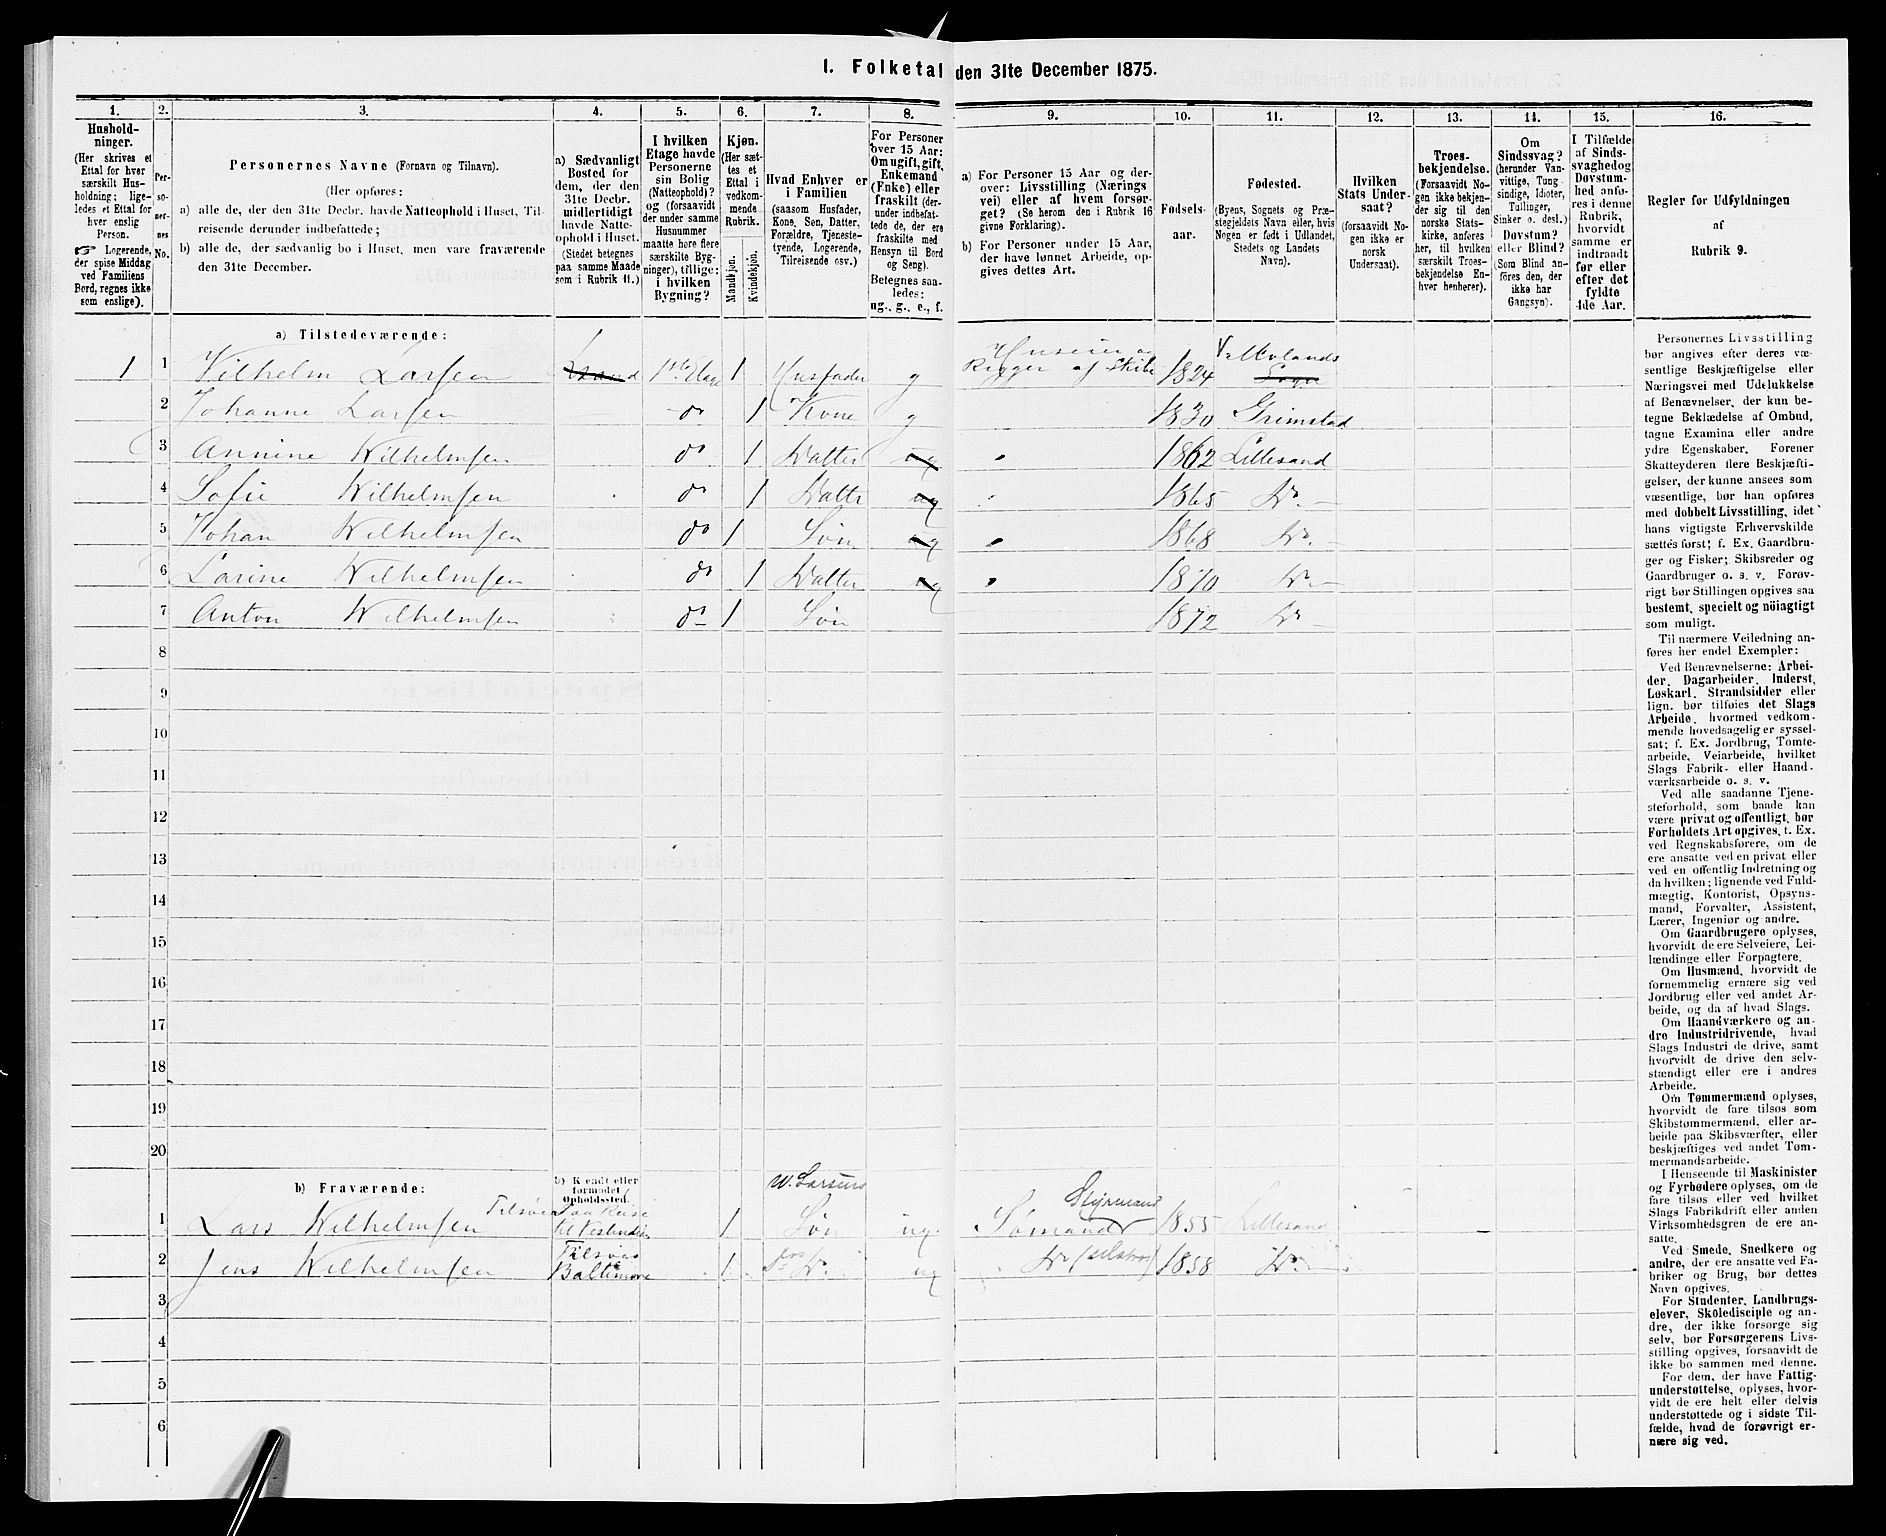 I. Folketal den 31te December 1875.
1. 2. 3. 4. 5. 6. 7. 8. 9. 10. 11. 12. 13. 14. 15. 16.
Hushold-
ninger.
(Her skrives et
Ettal for hver
særskilt Hus-
holdning; lige-
ledes et Ettal for
hver enslig
Person.
☞ Logerende,
der spise Middag
ved Familiens
Bord, regnes ikke
som enslige).
Per-
so-
ner-
nes
No.
Personernes Navne (Fornavn og Tilnavn).
(Her opføres:
a) alle de, der den 31te Decbr. havde Natteophold i Huset, Til-
reisende derunder indbefattede;
b) alle de, der sædvanlig bo i Huset, men vare fraværende
den 31te December.
a) Sædvanligt
Bosted for
dem, der den
31te Decbr.
midlertidigt
havde Natte-
ophold i Huset.
(Stedet betegnes
paa samme Maade
som i Rubrik 11.)
I hvilken
Etage havde
Personerne
sin Bolig
(Natteophold)?
og (forsaavidt
der under samme
Husnummer
maatte høre flere
særskilte Byg-
ninger), tillige:
i hvilken
Bygning?
Kjøn.
(Her sæt-
tes et
Ettal i
vedkom-
mende
Rubrik.
Mandkjøn.
Kvindekjøn.
Hvad Enhver er
i Familien
(saasom Husfader,
Kone, Søn, Datter,
Forældre, Tjeneste-
tyende, Logerende,
Tilreisende osv.)
For Personer
over 15 Aar:
Om ugift, gift,
Enkemand
(Enke) eller
fraskilt (der-
under indbefat-
tede de, der ere
fraskilte med
Hensyn til Bord
og Seng).
Betegnes saa-
ledes:
ug., g., e., f.
a) For Personer 15 Aar og der-
over: Livsstilling (Nærings
vei) eller af hvem forsør-
get? (Se herom den i Rubrik 16
givne Forklaring).
b) For Personer under 15 Aar,
der have lønnet Arbeide, op-
gives dettes Art.
Fødsels-
aar.
Fødested.
(Byens, Sognets og Præ-
stegjeldets Navn eller, hvis
Nogen er født i Udlandet,
Stedets og Landets
Navn).
Hvilken
Stats Under-
saat?
(forsaavidt No-
gen ikke er
norsk
Undersaat).
Troes-
bekjendelse.
(Forsaavidt No-
gen ikke bekjen-
der sig til den
norske Stats-
kirke, anføres
her, til hvilken
særskilt Troes-
bekjendelse En-
hver henhører).
Om
Sindssvag?
(herunder Van-
vittige, Tung
sindige, Idioter,
Tullinger,
Sinker o. desl.)
Døvstum?
eller Blind?
(Som Blind an-
føres den, der
ikke har
Gangsyn).
I Tilfælde
af Sinds-
svaghed og
Døvstum-
hed anfø-
res i denne
Rubrik,
hvorvidt
samme er
indtraadt
før eller
efter det
fyldte
4de Aar.
Regler for Udfyldningen
af
Rubrik 9.
a) Tilstedeværende:
1 1 Vilhelm Larsen 1ste Etage 1 Husfader g Huseier og Rigger af Skibe 1824 Sogn
2 Johanne Larsen do 1 Kone g 1830 Grimstad
3 Annine Wilhelmsen do 1 Datter ug 1862 Lillesand
4 Sofie Wilhelmsen do 1 Datter ug 1865 Do.
5 Johan Wilhelmsen do 1 Søn ug 1868 Do.
6 Larine Wilhelmsen do 1 Datter ug 1870 Do.
7 Anton Wilhelmsen do 1 Søn 1872 Do.
8
9
10
11
12
13
14
15
16
17
18
19
20
b) Fraværende:
b) Kjendt eller
formodet
Opholdssted.
W. Larsens
1 Lars Wilhelmsen Tilsøes Paa Reise til Vestindien 1 Søn ug. Sømand Styrmand 1855 Lillesand
2 Jens Wilhelmsen Tilsøes Baltimore 1 Do. ug Do. 1858 Do.
3
4
5
6
Personernes Livsstilling
bør angives efter deres væ-
sentlige Beskjæftigelse eller
Næringsvei med Udelukkelse
af Benævnelser, der kun be-
tegne Beklædelse af Ombud,
tagne Examina eller andre
ydre Egenskaber. Forener
Skatteyderen flere Beskjæfti-
gelser, der kunne ansees som
væsentlige, bør han opføres
med dobbelt Livsstilling, idet
hans vigtigste Erhvervskilde
sættes først; f. Ex. Gaardbru-
ger og Fisker; Skibsreder og
Gaardbruger o. s. v. Forøv-
rigt bør Stillingen opgives saa
bestemt, specielt og nöiagtigt
som muligt.
Til nærmere Veiledning an-
føres her endel Exempler:
Ved Benævnelserne: Arbei-
der, Dagarbeider, Inderst,
Løskarl, Strandsidder eller
lign. bør tilføies det Slags
Arbeide, hvormed vedkom-
mende hovedsagelig er syssel-
sat; f. Ex. Jordbrug, Tomte-
arbeide, Veiarbeide, hvilket
Slags Fabrik- eller Haand-
værksarbeide o. s. v.
Ved alle saadanne Tjene-
steforhold, som baade kan
være privat og offentligt, bør
Forholdets Art opgives, t. Ex.
ved Regnskabsførere, om de
ere ansatte ved en privat eller
ved en offentlig Indretning og
da hvilken; lignende ved Fuld-
mægtig, Kontorist, Opsyns-
mand, Forvalter, Assistent,
Lærer, Ingeniør og andre.
Om Gaardbrugere oplyses,
hvorvidt de ere Selveiere, Lei-
lændinge eller Forpagtere.
Om Husmænd, hvorvidt de
fornemmelig ernære sig ved
Jordbrug eller ved andet Ar-
beide, og da af hvad Slags.
Om Haandværkere og an-
dre Industridrivende, hvad
Slags Industri de drive, samt
hvorvidt de drive den selv-
stændigt eller ere i andres
Arbeide.
Om Tømmermænd oplyses,
hvorvidt de fare tilsøs som
Skibstømmermænd, eller ar-
beide paa Skibsværfter, eller
beskjæftiges ved andet Tøm-
mermandsarbeide.
I Henseende til Maskinister
og Fyrbødere oplyses, om de
fare tilsøs eller ved hvilket
Slags Fabrikdrift eller anden
Virksomhedsgren de ere an-
satte.
Ved Smede, Snedkere og
andre, der ere ansatte ved Fa-
briker og Brug, bør dettes
Navn opgives.
For Studenter, Landbrugs-
elever, Skoledisciple og an-
dre, der ikke forsørge sig
selv, bør Forsørgerens Livs-
stilling opgives, forsaavidt de
ikke bo sammen med denne.
For dem, der have Fattig-
understøttelse, oplyses, hvor-
vidt de ere helt eller delvis
understøttede og i sidste Til-
fælde, hvad de forøvrigt er-
nære sig ved.